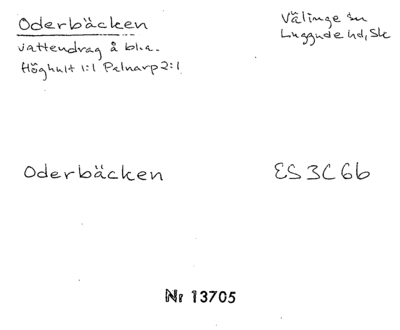 Oderbäcken
Välinge sn
vattendrag å bl.a.
Luggude hd, Sk
Höghult 1:1 Pelnarp 2:1
Oderbäcken
ES 3C 6b
Nr 13705